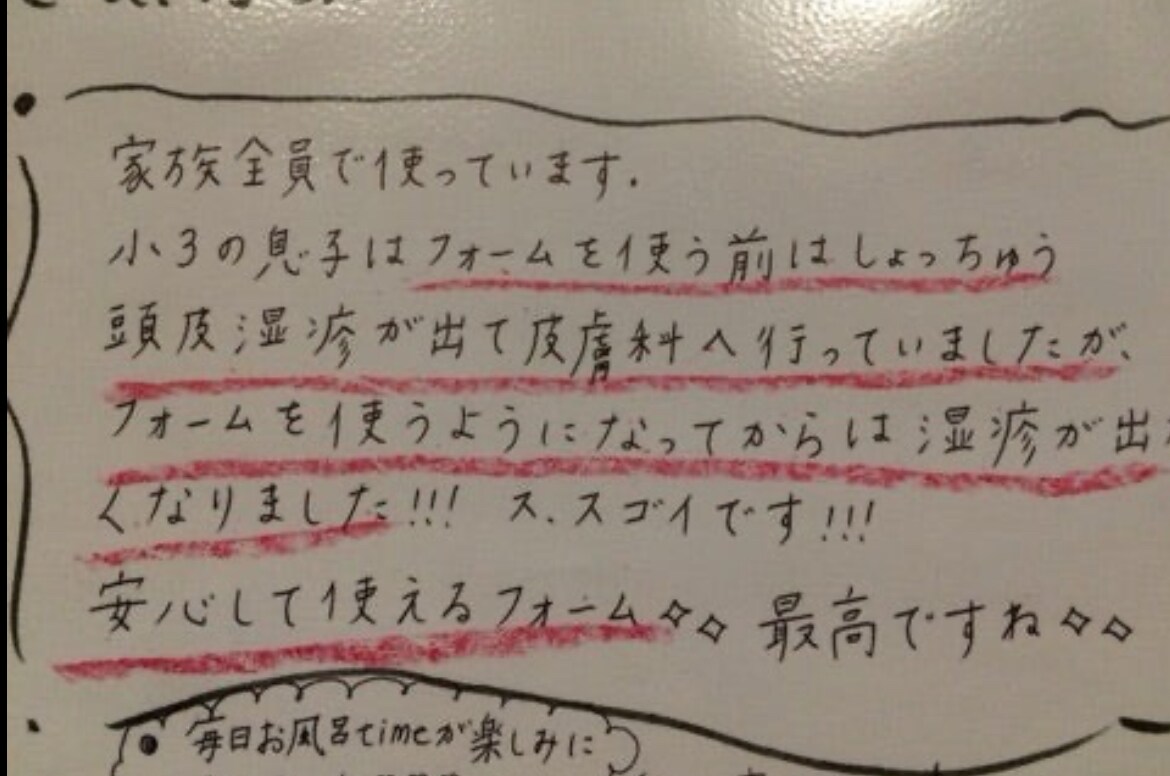 家族全員で使っています.
小3の息子はフォームを使う前はしょっちゅう
頭皮湿疹が出て皮膚科へ行っていましたが、
フォームを使うようになってからは湿疹が出
くなりました!!! ス.スゴイです!!!
安心して使えるフォーム✧✧ 最高ですね✧✧
• 毎日お風呂timeが楽しみに